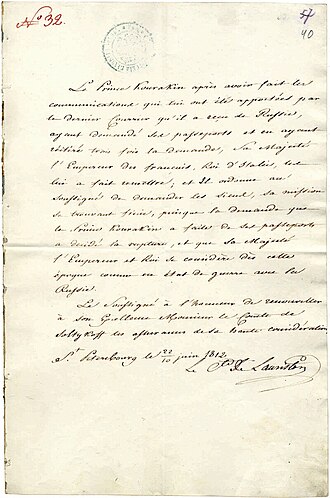 № 32.
57
40
Le Prince Kourakin après avoir fait les
communications qui lui ont été apportées par
le dernier Courier qu'il a reçu de Russie,
ayant demandé ses passeports et en ayant
réitéré trois fois la demande, Sa Majesté
l'Empereur des français, Roi d'Italie, les
lui a fait remettre, et Il ordonne au
Soussigné de demander les siens, sa mission
se trouvant finie, puisque la demande que
le Prince Kourakin a faite de ses passeports
a décidé la rupture, et que Sa Majesté
l'Empereur et Roi se considère dès cette
époque comme en état de guerre avec la
Russie.
Le Soussigné a l'honneur de renouveller
à Son Excellence Monsieur le Comte de
Soltykoff les assurances de sa haute considération
St Petersbourg le 22/10 juin 1812.
Le Cte De Lauriston